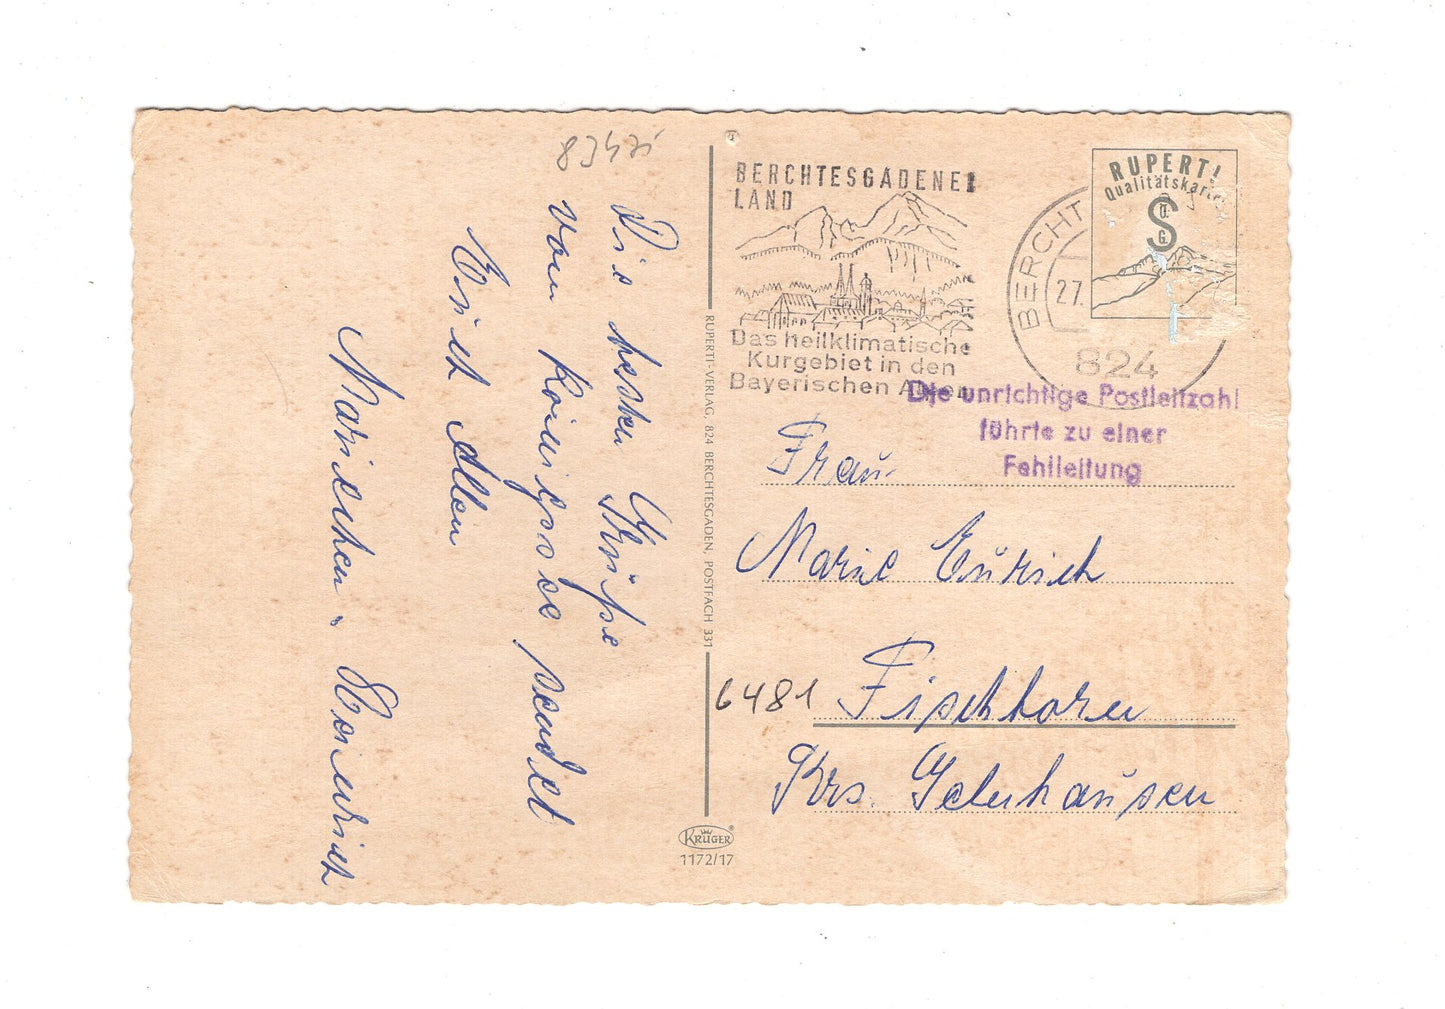 8242i
Die besten Grüße
vom Königssee sendet
Euch Allen
Mariechen u. Heinrich
BERCHTESGADENER
LAND
Das heilklimatische
Kurgebiet in den
Bayerischen Alpen
BERCHT
27.
824
RUPERTI
Qualitätskarte
S
Ü.
G.
Die unrichtige Postleitzahl
führte zu einer
Fehlleitung
RUPERTI-VERLAG, 824 BERCHTESGADEN, POSTFACH 331
Frau
Marie Eurich
6481 Fischborn
Krs. Gelnhausen
KRÜGER
1172/17